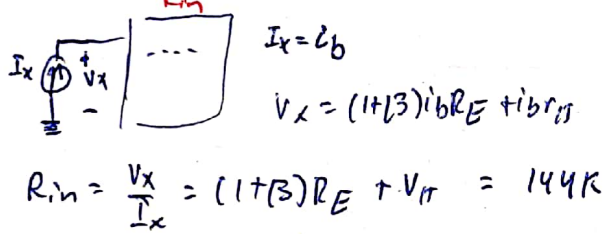 Rin
Ix = ib
Ix + Vx -
Vx = (1+β)ibRE + ibrπ
Rin = Vx/Ix = (1+β)RE + Vπ = 144K